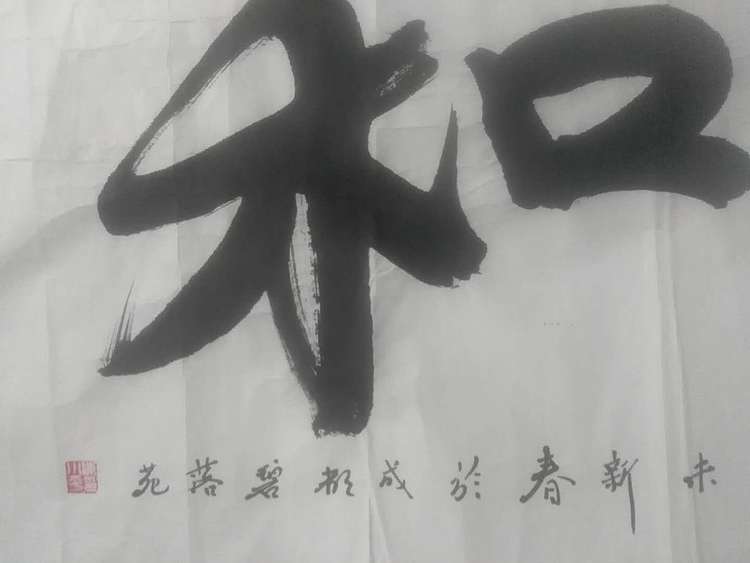 和
未新春於成都碧落苑